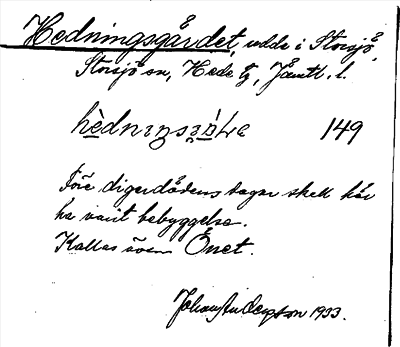 Hedningsgårdet, udde i Storsjö,
Storsjö sn, Hede tg, Jämtl. l.
149
Före digerdödens dagar skall här
ha varit bebyggelse.
Kallas även Önet.
Johan Anderson 1933.